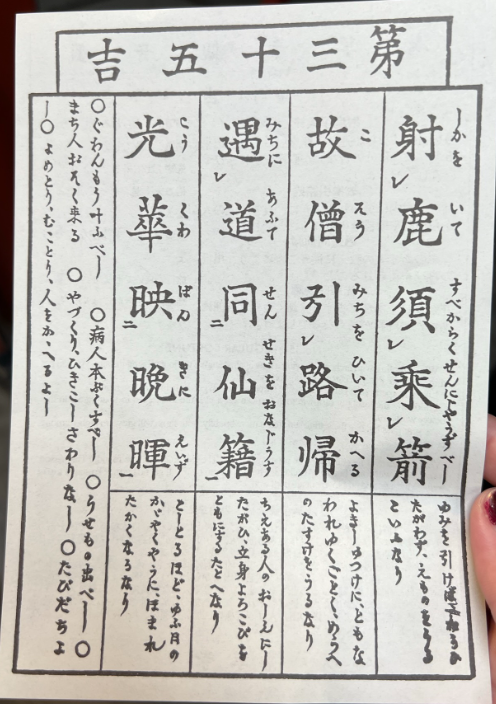 第三十五吉
しかを いて すべからくせんにじやうずべし
射レ鹿須レ乗レ箭
ゆみを引けば
たがわず、えものをうる
こといふなり
こ そう みちを ひいて かへる
故僧引レ路帰
よきしゆつけに、ともな
われゆくごとくめうへ
のたすけをうるなり
みちに あふて せん せきを おなじうす
遇レ道同二仙籍一
ちえある人のおしえにし
たがひ、立身よろこびを
ともにするたとへなり
こう くわ ばん きに えいず
光華映二晩暉一
ほど、ゆふ月の
かゞやくやうに、ほまれ
たかくなるなり
○ぐわんもう叶ふべし ○病人本ぷくすべし ○うせもの出べし ○
まち人おそく来る ○やづくり、ひきこしさわりなし ○たびだちよ
し○よめとり、むことり、人をかゝへるよし